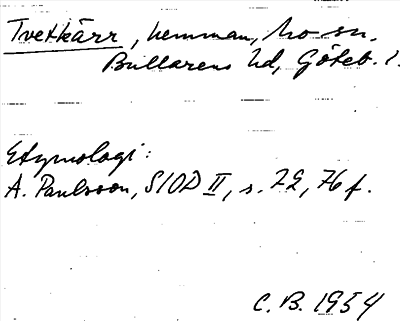 Tvetkärr, hemman, Mo sn,
Bullarens hd, Göteb. l.
Etymologi:
A. Paulsson, SIOD II, s. 72, 76 f.
C. B. 1954